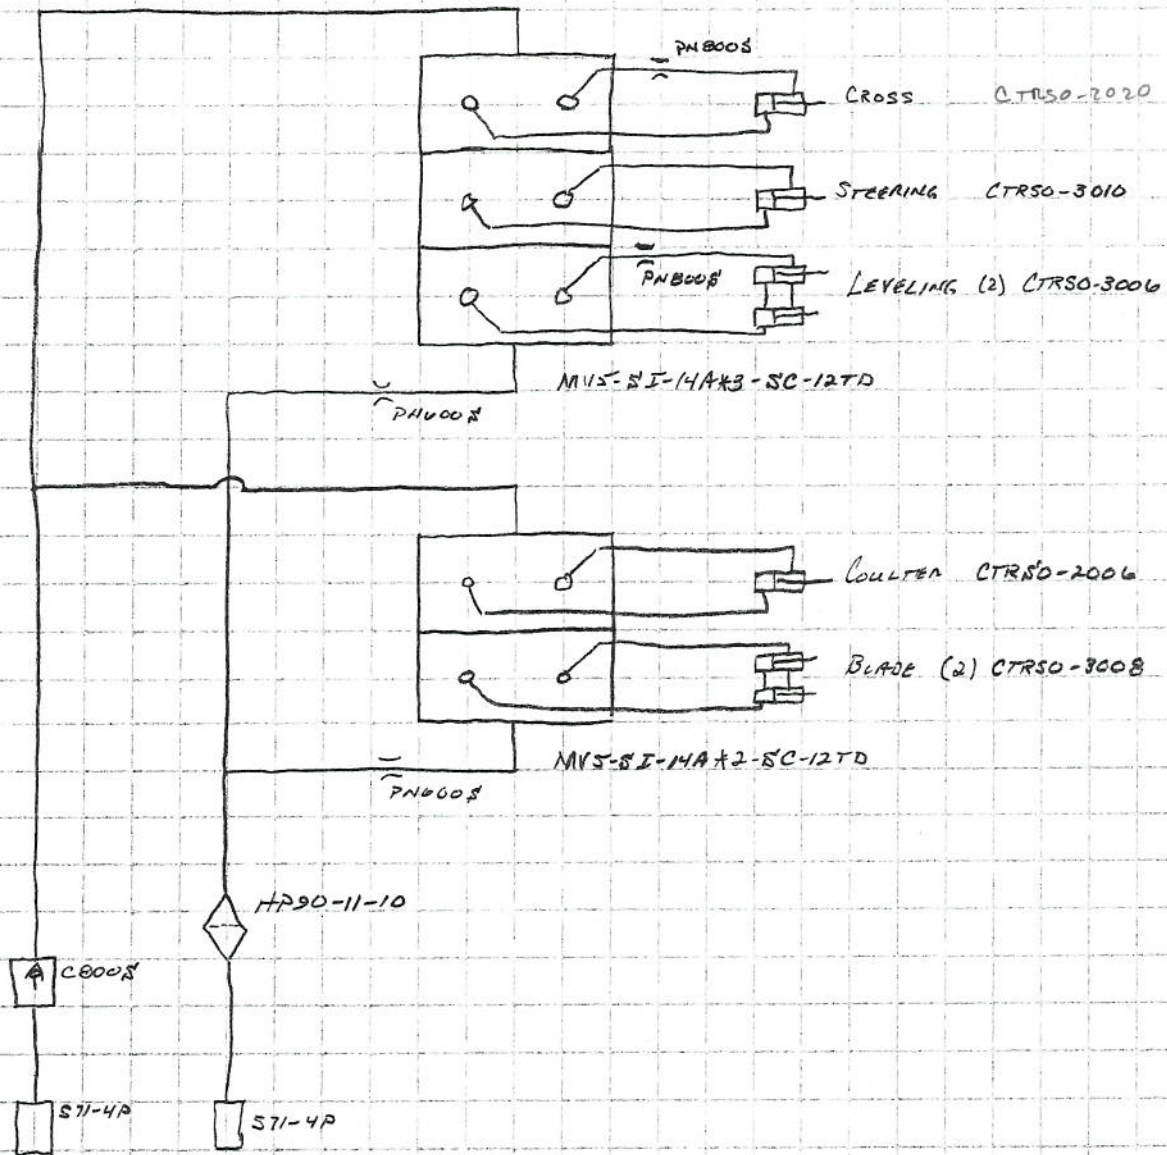 PN800S
CROSS CTRSO-2020
STEERING CTRSO-3010
PN800S
LEVELING (2) CTRSO-3006
MV5-SI-14A*3-SC-12TD
PN600S
COULTER CTRSO-2006
BLADE (2) CTRSO-3008
MV5-SI-14A*2-SC-12TD
PN600S
HP90-11-10
C800S
S71-4P
S71-4P